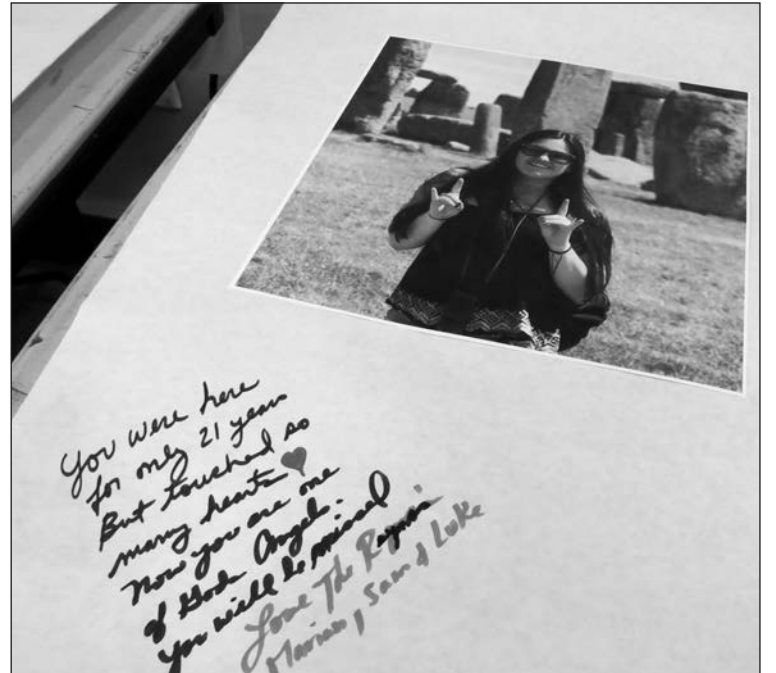 You were here
for only 21 years
But touched so
many hearts
Now you are one
of Gods Angel.
You will be missed
Love The
Sam & Luke